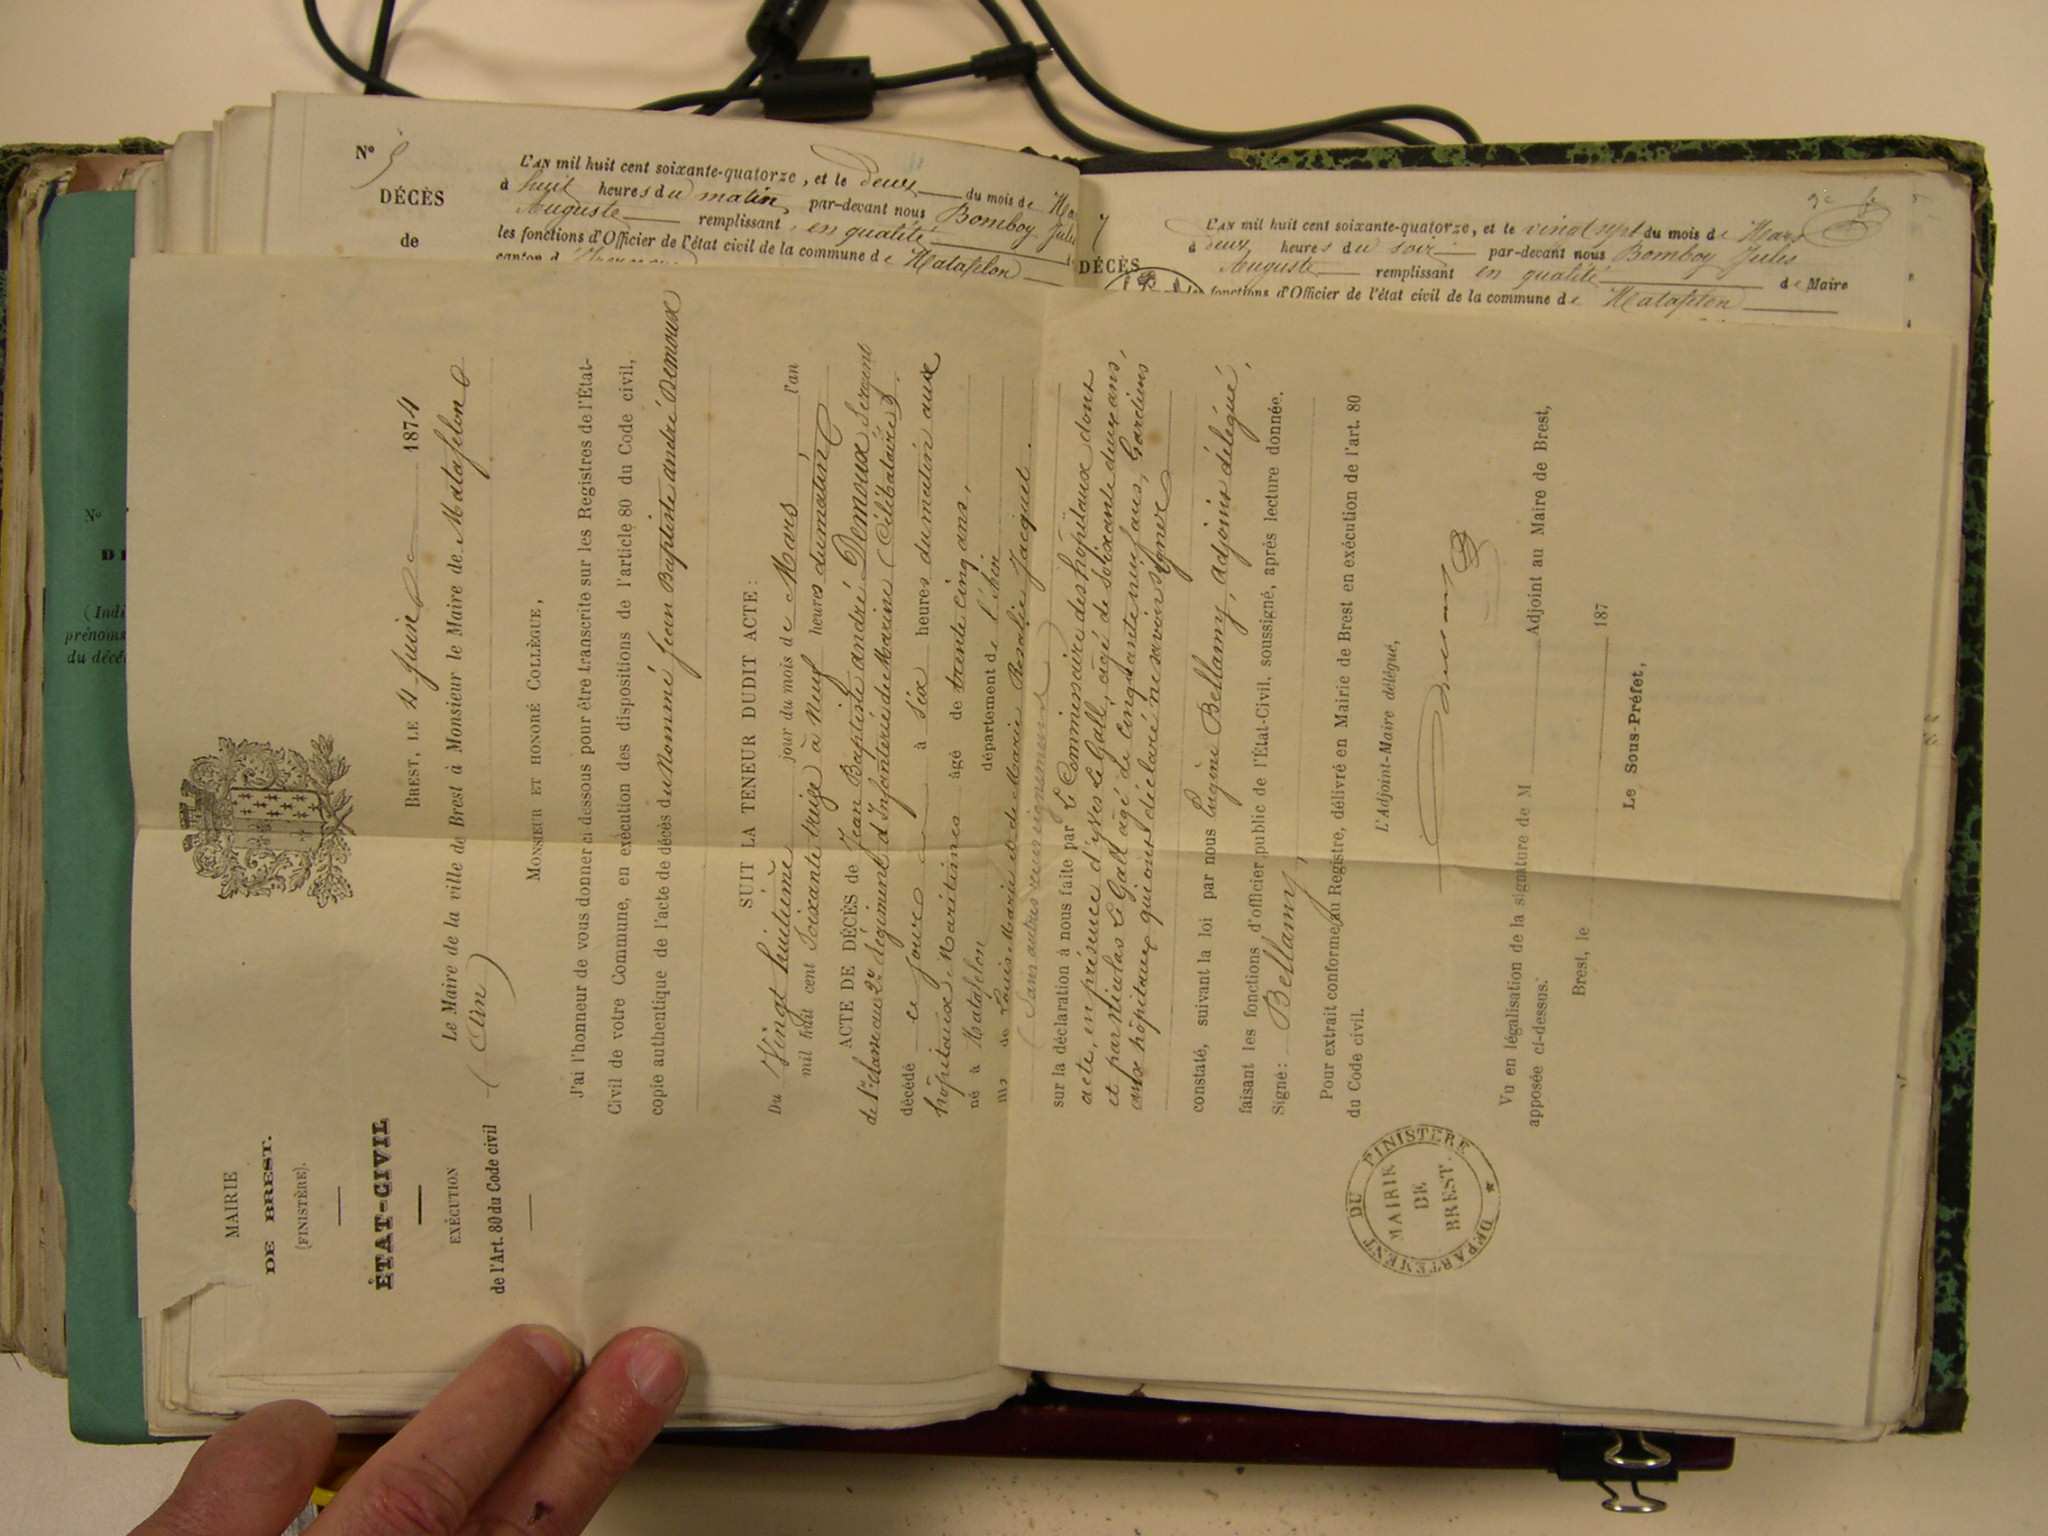 N° 5
DÉCÈS
de
L'AN mil huit cent soixante-quatorze, et le deux du mois de
à huit heures du matin par-devant nous Bomboy Jules
Auguste remplissant en qualité
les fonctions d'Officier de l'état civil de la commune de Matafelon
canton d
7
DÉCÈS
L'AN mil huit cent soixante-quatorze, et le vingt sept du mois de Mars
à deux heures du soir par-devant nous Bomboy Jules
Auguste remplissant en qualité de Maire
les fonctions d'Officier de l'état civil de la commune de Matafelon
N°
(Indi
prénoms
du décé
MAIRIE
DE BREST.
(FINISTÈRE).
ÉTAT-CIVIL
EXÉCUTION
de l'Art. 80 du Code civil
BREST, LE 4 Juin 1874
Le Maire de la ville de Brest à Monsieur le Maire de Matafelon
(Ain)
MONSIEUR ET HONORÉ COLLÈGUE,
J'ai l'honneur de vous donner ci dessous pour être transcrite sur les Registres de l'État-
Civil de votre Commune, en exécution des dispositions de l'article 80 du Code civil,
copie authentique de l'acte de décès du Nommé Jean Baptiste andré Demoux
SUIT LA TENEUR DUDIT ACTE:
Du Vingt huitième jour du mois de Mars l'an
mil huit cent Soixante treize à Neuf heures du matin
ACTE DE DÉCÈS de Jean Baptiste andré Demoux Sergent
de 1re classe au 2e régiment d'Infanterie de Marine (Célibataire)
décédé ce jour à Six heures du matin aux
hôpitaux Maritimes âgé de trente cinq ans,
né à Matafelon département de l'Ain
fils de Louis Marie et de Marie Rosalie Jacquet.
(Sans autres renseignements)
sur la déclaration à nous faite par le Commissaire des hôpitaux dont
acte, en présence d'yves Le Gall, âgé de Soixante deux ans,
et par Nicolas Le Gall âgé de cinquante neuf ans, Gardiens
aux hôpitaux qui ont déclaré ne savoir signer
constaté, suivant la loi par nous Eugène Bellamy, adjoint délégué,
faisant les fonctions d'officier public de l'État-Civil, soussigné, après lecture donnée.
Signé: Bellamy,
Pour extrait conforme au Registre, délivré en Mairie de Brest en exécution de l'art. 80
du Code civil.
L'Adjoint-Maire délégué,
Vu en légalisation de la signature de M Adjoint au Maire de Brest,
apposée ci-dessus.
Brest, le 187
Le Sous-Préfet,
DÉPARTEMENT DU FINISTÈRE
MAIRIE
DE
BREST.